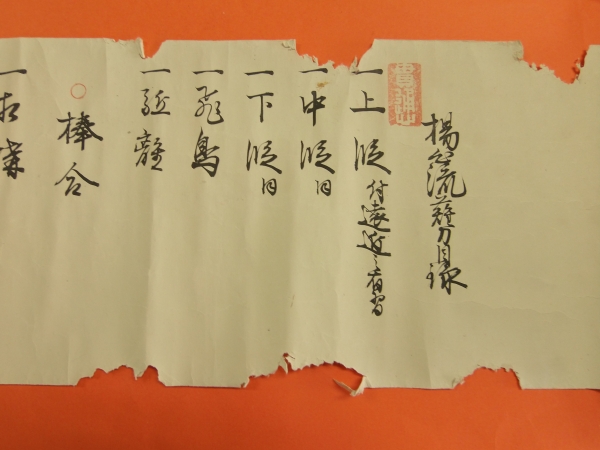 楊心流薙刀目録
一上段 付遠近之有習
一中段 同
一下段 同
一飛鳥
○棒合